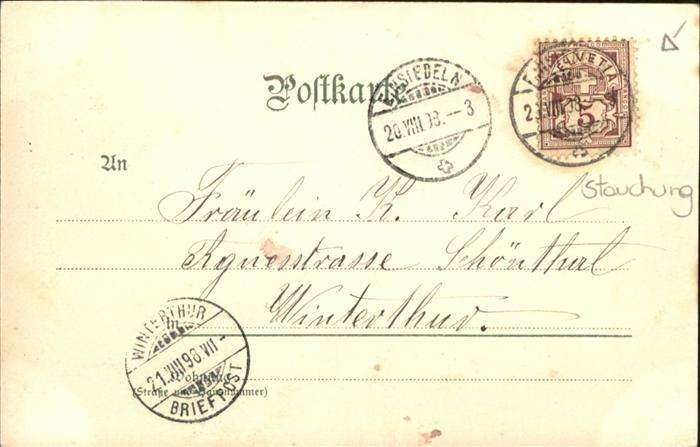 Postkarte
EINSIEDELN
20.VIII.98.—3
HELVETIA
5
An
Stauchung
Fräulein K. Karl
Agnesstrasse Schönthal
Winterthur.
WINTERTHUR
21.VIII98.VII-
BRIEFPOST
Wohnung
(Straße und Hausnummer)